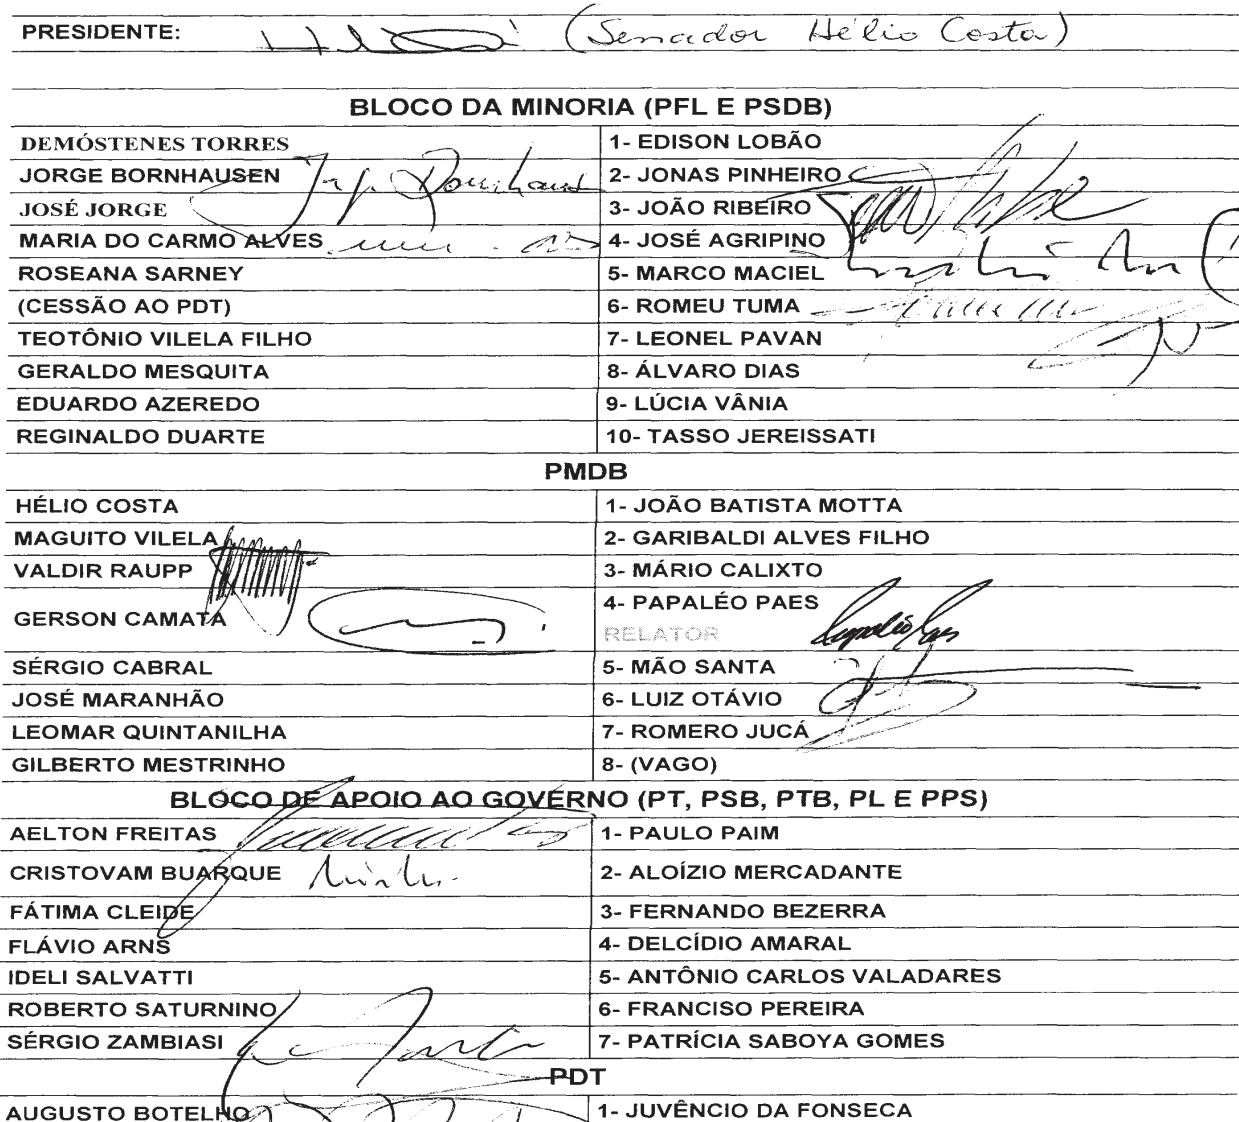 PRESIDENTE: (Senador Hélio Costa)
BLOCO DA MINORIA (PFL E PSDB)
DEMÓSTENES TORRES 1- EDISON LOBÃO
JORGE BORNHAUSEN 2- JONAS PINHEIRO
JOSÉ JORGE 3- JOÃO RIBEIRO
MARIA DO CARMO ALVES 4- JOSÉ AGRIPINO
ROSEANA SARNEY 5- MARCO MACIEL
(CESSÃO AO PDT) 6- ROMEU TUMA
TEOTÔNIO VILELA FILHO 7- LEONEL PAVAN
GERALDO MESQUITA 8- ÁLVARO DIAS
EDUARDO AZEREDO 9- LÚCIA VÂNIA
REGINALDO DUARTE 10- TASSO JEREISSATI
PMDB
HÉLIO COSTA 1- JOÃO BATISTA MOTTA
MAGUITO VILELA 2- GARIBALDI ALVES FILHO
VALDIR RAUPP 3- MÁRIO CALIXTO
GERSON CAMATA 4- PAPALÉO PAES
RELATOR
SÉRGIO CABRAL 5- MÃO SANTA
JOSÉ MARANHÃO 6- LUIZ OTÁVIO
LEOMAR QUINTANILHA 7- ROMERO JUCÁ
GILBERTO MESTRINHO 8- (VAGO)
BLOCO DE APOIO AO GOVERNO (PT, PSB, PTB, PL E PPS)
AELTON FREITAS 1- PAULO PAIM
CRISTOVAM BUARQUE 2- ALOÍZIO MERCADANTE
FÁTIMA CLEIDE 3- FERNANDO BEZERRA
FLÁVIO ARNS 4- DELCÍDIO AMARAL
IDELI SALVATTI 5- ANTÔNIO CARLOS VALADARES
ROBERTO SATURNINO 6- FRANCISO PEREIRA
SÉRGIO ZAMBIASI 7- PATRÍCIA SABOYA GOMES
PDT
AUGUSTO BOTELHO 1- JUVÊNCIO DA FONSECA